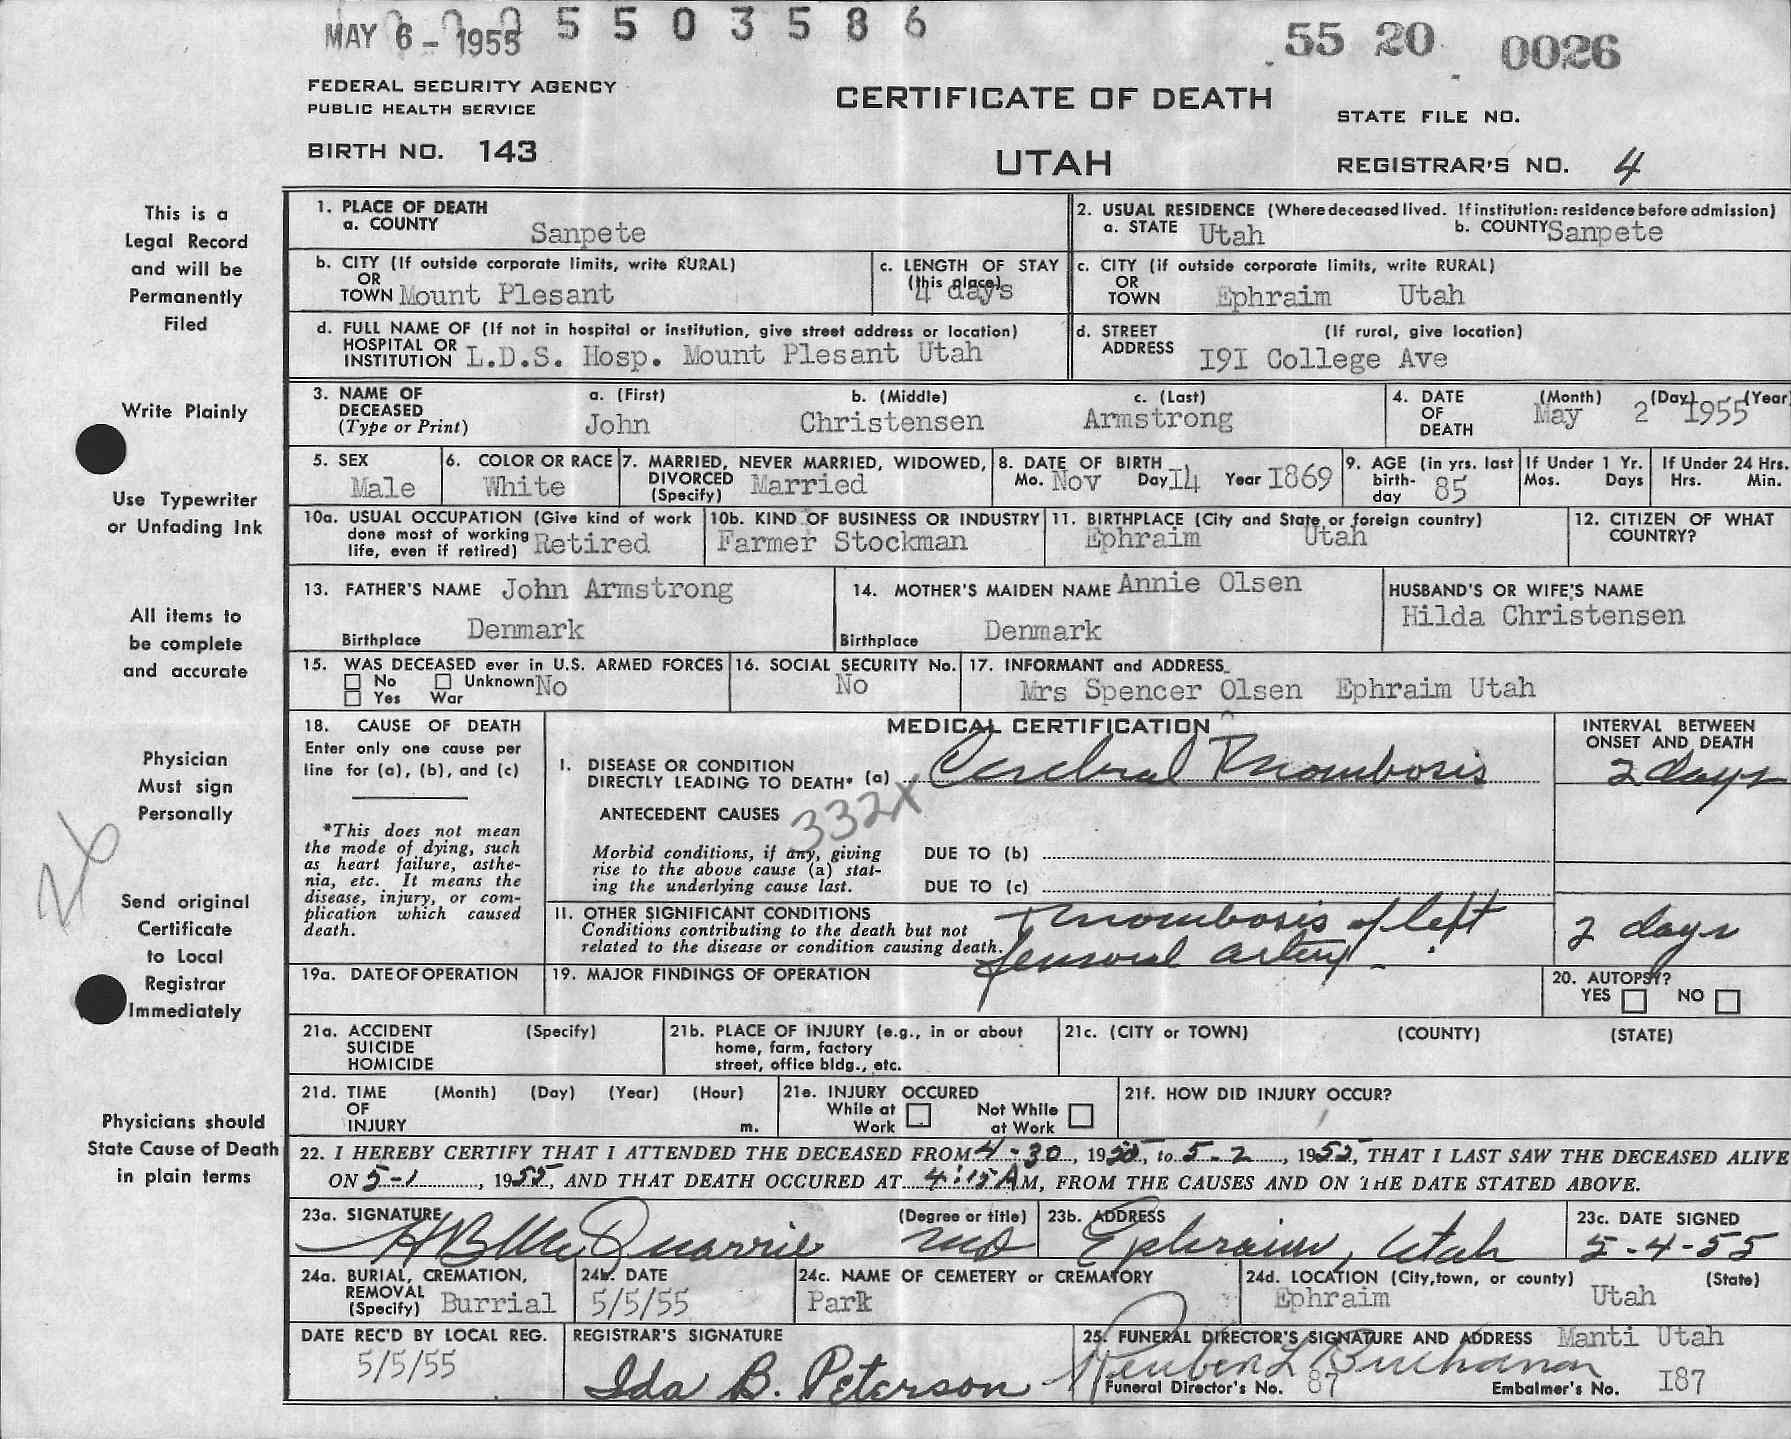 MAY 6 - 1955 5 5 0 3 5 8 6 55 20 0026
FEDERAL SECURITY AGENCY
PUBLIC HEALTH SERVICE
CERTIFICATE OF DEATH
STATE FILE NO.
BIRTH NO. 143
UTAH
REGISTRAR'S NO. 4
This is a
Legal Record
and will be
Permanently
Filed
Write Plainly
Use Typewriter
or Unfading Ink
All items to
be complete
and accurate
Physician
Must sign
Personally
26
Send original
Certificate
to Local
Registrar
Immediately
Physicians should
State Cause of Death
in plain terms
1. PLACE OF DEATH
a. COUNTY Sanpete
2. USUAL RESIDENCE (Where deceased lived. If institution: residence before admission)
a. STATE Utah b. COUNTY Sanpete
b. CITY (If outside corporate limits, write RURAL)
OR
TOWN Mount Plesant
c. LENGTH OF STAY
(this place)
4 days
c. CITY (if outside corporate limits, write RURAL)
OR
TOWN Ephraim Utah
d. FULL NAME OF (If not in hospital or institution, give street address or location)
HOSPITAL OR
INSTITUTION L.D.S. Hosp. Mount Plesant Utah
d. STREET (If rural, give location)
ADDRESS I9I College Ave
3. NAME OF a. (First) b. (Middle) c. (Last)
DECEASED
(Type or Print) John Christensen Armstrong
4. DATE (Month) (Day) (Year)
OF May 2 1955
DEATH
5. SEX
Male
6. COLOR OR RACE
White
7. MARRIED, NEVER MARRIED, WIDOWED,
DIVORCED
(Specify) Married
8. DATE OF BIRTH
Mo. Nov Day I4 Year I869
9. AGE (in yrs. last
birth-
day 85
If Under 1 Yr.
Mos. Days
If Under 24 Hrs.
Hrs. Min.
10a. USUAL OCCUPATION (Give kind of work
done most of working
life, even if retired) Retired
10b. KIND OF BUSINESS OR INDUSTRY
Farmer Stockman
11. BIRTHPLACE (City and State or foreign country)
Ephraim Utah
12. CITIZEN OF WHAT
COUNTRY?
13. FATHER'S NAME John Armstrong
Birthplace Denmark
14. MOTHER'S MAIDEN NAME Annie Olsen
Birthplace Denmark
HUSBAND'S OR WIFE'S NAME
Hilda Christensen
15. WAS DECEASED ever in U.S. ARMED FORCES
No Unknown No
Yes War
16. SOCIAL SECURITY No.
No
17. INFORMANT and ADDRESS
Mrs Spencer Olsen Ephraim Utah
18. CAUSE OF DEATH
Enter only one cause per
line for (a), (b), and (c)
*This does not mean
the mode of dying, such
as heart failure, asthe-
nia, etc. It means the
disease, injury, or com-
plication which caused
death.
MEDICAL CERTIFICATION
INTERVAL BETWEEN
ONSET AND DEATH
I. DISEASE OR CONDITION
DIRECTLY LEADING TO DEATH* (a) Cerebral Thrombosis 2 days
ANTECEDENT CAUSES 332X
Morbid conditions, if any, giving
rise to the above cause (a) stat-
ing the underlying cause last.
DUE TO (b)
DUE TO (c)
II. OTHER SIGNIFICANT CONDITIONS
Conditions contributing to the death but not
related to the disease or condition causing death.
Thrombosis of left
femoral artery
2 days
19a. DATE OF OPERATION
19. MAJOR FINDINGS OF OPERATION
20. AUTOPSY?
YES NO
21a. ACCIDENT (Specify)
SUICIDE
HOMICIDE
21b. PLACE OF INJURY (e.g., in or about
home, farm, factory
street, office bldg., etc.
21c. (CITY or TOWN) (COUNTY) (STATE)
21d. TIME (Month) (Day) (Year) (Hour)
OF
INJURY m.
21e. INJURY OCCURED
While at Not While
Work at Work
21f. HOW DID INJURY OCCUR?
22. I HEREBY CERTIFY THAT I ATTENDED THE DECEASED FROM 4-30, 1955, to 5-2, 1955, THAT I LAST SAW THE DECEASED ALIVE
ON 5-1, 1955, AND THAT DEATH OCCURED AT 4:15 A M, FROM THE CAUSES AND ON THE DATE STATED ABOVE.
23a. SIGNATURE (Degree or title)
H B McQuarrie MD
23b. ADDRESS
Ephraim, Utah
23c. DATE SIGNED
5-4-55
24a. BURIAL, CREMATION,
REMOVAL
(Specify) Burrial
24b. DATE
5/5/55
24c. NAME OF CEMETERY or CREMATORY
Park
24d. LOCATION (City, town, or county) (State)
Ephraim Utah
DATE REC'D BY LOCAL REG.
5/5/55
REGISTRAR'S SIGNATURE
Ida B. Peterson
25. FUNERAL DIRECTOR'S SIGNATURE AND ADDRESS Manti Utah
Reuben L Buchanan
Funeral Director's No. 87 Embalmer's No. I87